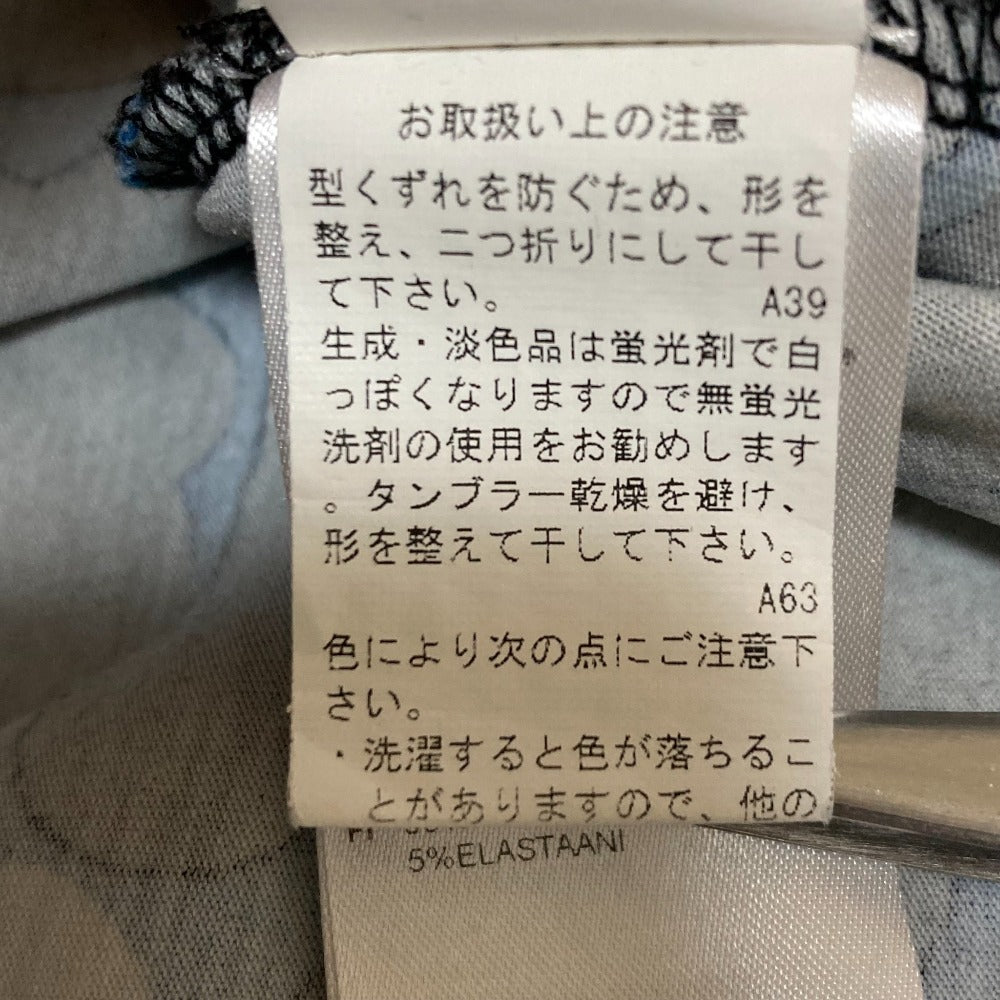 お取扱い上の注意
型くずれを防ぐため、形を
整え、二つ折りにして干し
て下さい。 A39
生成・淡色品は蛍光剤で白
っぽくなりますので無蛍光
洗剤の使用をお勧めします
。タンブラー乾燥を避け、
形を整えて干して下さい。
A63
色により次の点にご注意下
さい。
・洗濯すると色が落ちるこ
とがありますので、他の
5%ELASTAANI